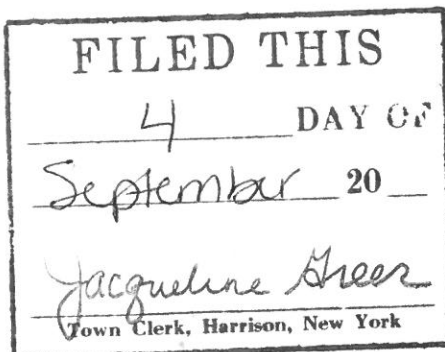 FILED THIS
4 DAY OF
September 20
Jacqueline Greer
Town Clerk, Harrison, New York